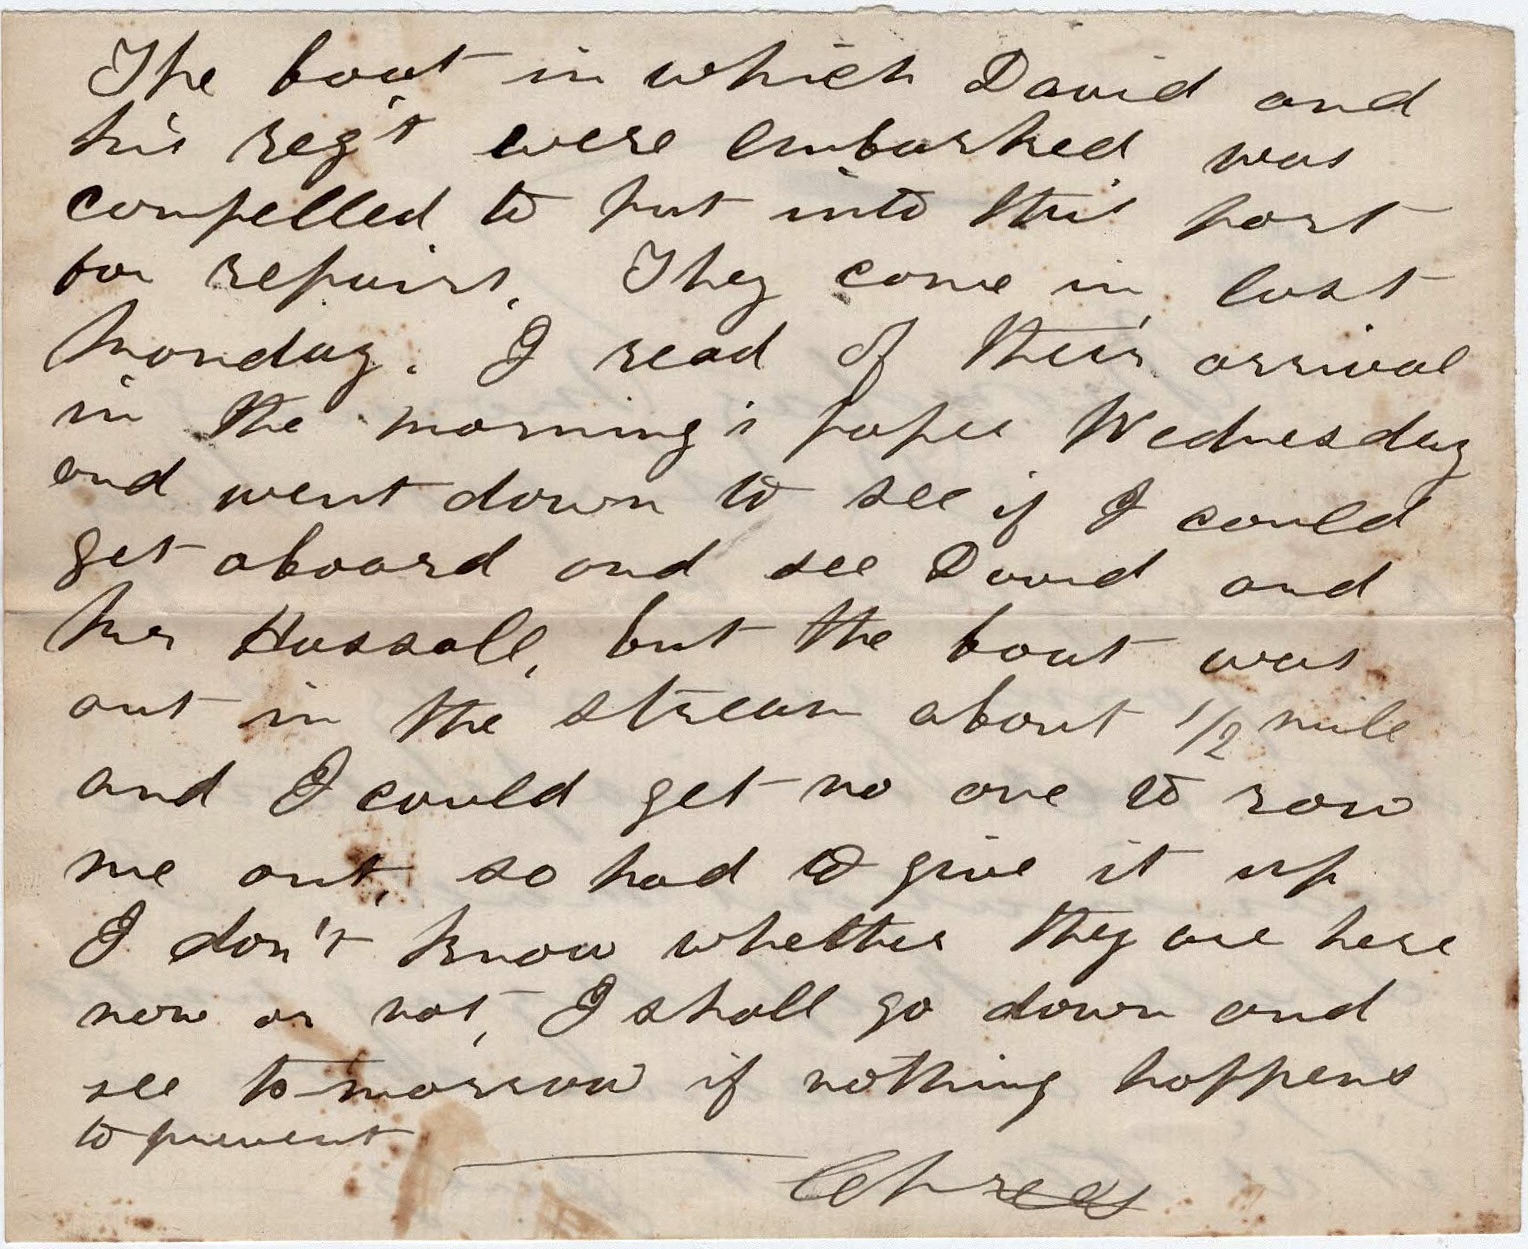 The boat in which David and
his reg't were embarked was
compelled to put into this port
for repairs. They came in, last
Monday. I read of their arrival
in the morning's paper Wednesday
and went down to see if I could
get aboard and see David and
Mr Hassall, but the boat was
out in the stream about 1/2 mile
and I could get no one to row
me out, so had to give it up
I don't know whether they are here
now or not, I shall go down and
see to-morrow if nothing happens
to prevent